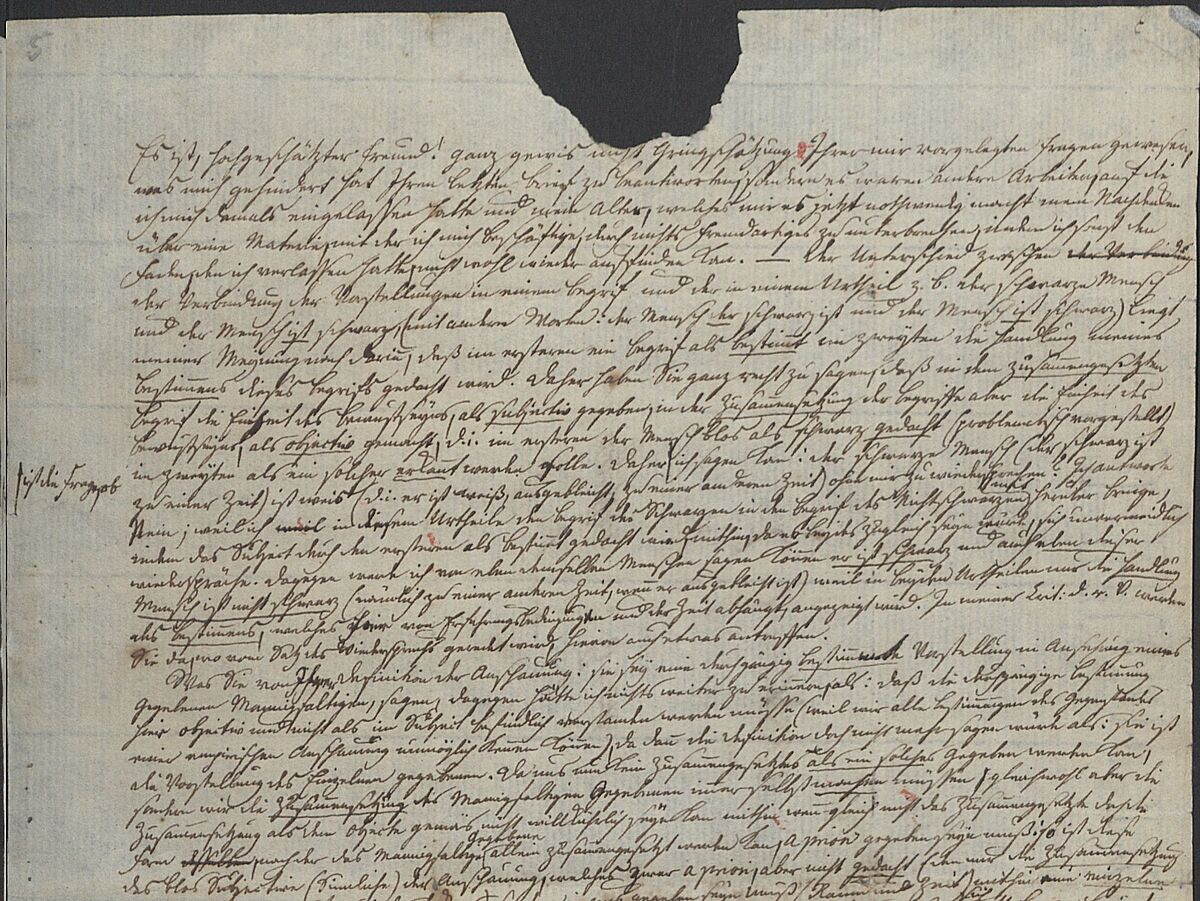 5
Es ist, hochgeschätzter Freund! ganz gewis nicht Gringschätzung Ihrer mir vorgelegten Fragen gewesen,
was mich gehindert hat Ihren letzten Brief zu beantworten, sondern es waren andere Arbeiten, auf die
ich mich damals eingelassen hatte und mein Alter, welches mir es jetzt nothwendig macht mein Nachdenken
über eine Materie, mit der ich mich beschäftige, durch nichts fremdartiges zu unterbrechen, indem ich sonst den
Faden, den ich verlassen hatte, nicht wohl wieder auffinden kan. — Der Unterschied zwischen der Verbindung
der Verbindung der Vorstellungen in einem Begrif und der in einem Urtheil z. B. der schwarze Mensch
und der Mensch ist schwarz, (mit andern Worten: der Mensch der schwarz ist und der Mensch ist schwarz) liegt
meiner Meynung nach darin, daß im ersteren ein Begrif als bestimmt im zweyten die Handlung meines
Bestimmens dieses Begrifs gedacht wird. Daher haben Sie ganz recht zu sagen, daß in dem zusammengesetzten
Begrif die Einheit des Bewustseyns, als subjectiv gegeben, in der Zusammensetzung der Begriffe aber die Einheit des
Bewustseyns, als objectiv gemacht, d. i. im ersteren der Mensch blos als schwarz gedacht (problematisch vorgestellt)
im zweyten als ein solcher erkant werden solle. Daher ich sagen kan: der schwarze Mensch (der schwarz ist
ist die Frage ob
zu einer Zeit) ist weis (d. i. er ist weiß, ausgebleicht, zu einer anderen Zeit) ohne mir zu wiedersprechen? Ich antworte
Nein; weil ich in diesem Urtheile den Begrif des Schwarzen in den Begrif des Nichtschwarzen herüber bringe,
indem das Subject durch den ersteren als bestimt gedacht wird, mithin, da es beydes zugleich seyn würde, sich unvermeidlich
wiederspräche. Dagegen werde ich von eben demselben Menschen sagen können er ist schwarz und auch eben dieser
Mensch ist nicht schwarz (nämlich zu einer anderen Zeit, wenn er ausgebleicht ist) weil in beyden Urtheilen nur die Handlung
des Bestimmens, welches hier von Erfahrungsbedingungen und der Zeit abhängt, angezeigt wird. In meiner Crit: d. r. V. werden
Sie da, wo vom Satz des Wiederspruchs geredet wird, hievon auch etwas antreffen.
Was Sie von Ihrer Definition der Anschauung: sie sey eine durchgängig bestimmte Vorstellung in Ansehung eines
gegebenen Mannigfaltigen, sagen, dagegen hätte ich nichts weiter zu erinnern, als: daß die durchgängige Bestimmung
hier objectiv und nicht als im Subject befindlich verstanden werden müsse (weil wir alle Bestimmungen des Gegenstandes
einer empirischen Anschauung unmöglich kennen können), da dann die Definition doch nicht mehr sagen würde als: sie ist
die Vorstellung des Einzelnen gegebenen. Da uns nun kein Zusammengesetztes als ein solches gegeben werden kan,
sondern wir die Zusammensetzung des Mannigfaltigen Gegebenen immer selbst machen müssen, gleichwohl aber die
Zusammensetzung als dem Objecte gemäs nicht willkührlich seyn kan mithin wenn gleich nicht das Zusammengesetzte doch die
Form, nach der das Mannigfaltige gegebene allein zusammengesetzt werden kan, a priori gegeben seyn muß: so ist diese
das blos Subjective (Sinnliche) der Anschauung, welches zwar a priori, aber nicht gedacht (denn nur die Zusammensetzung